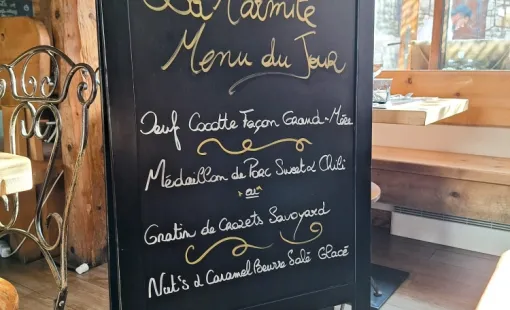 La Marmite
Menu du Jour
Oeuf Cocotte Façon Grand-Mère
Médaillon de Porc Sweet & Chili
ou
Gratin de Crozets Savoyard
Nut's & Caramel Beurre Salé Glacé